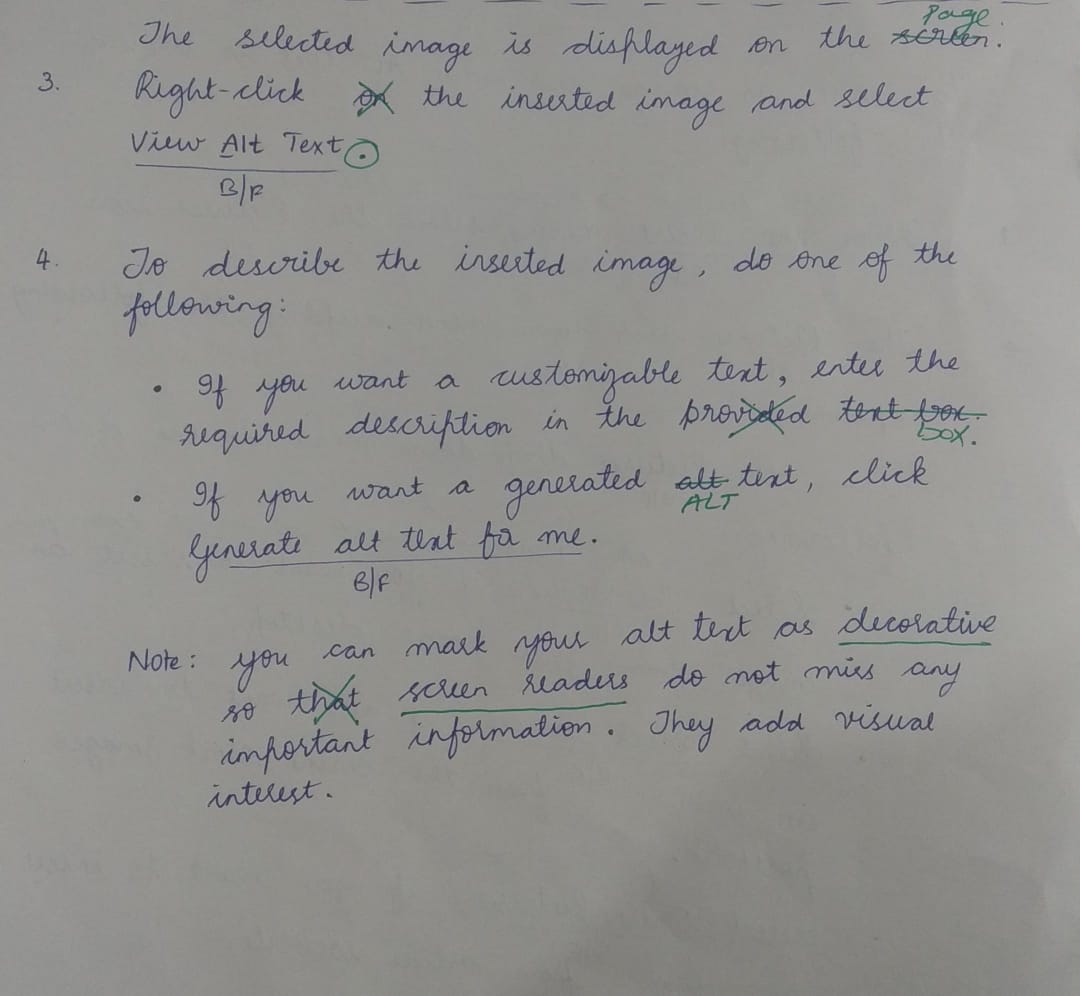 Page.
The selected image is displayed on the screen.
3. Right-click on the inserted image and select
View Alt Text.
B/F
4. To describe the inserted image, do one of the
following:
• If you want a customizable text, enter the
required description in the provided text box.
box.
• If you want a generated alt text, click
ALT
Generate alt text for me.
B/F
Note: you can mark your alt text as decorative
so that screen readers do not miss any
important information. They add visual
interest.